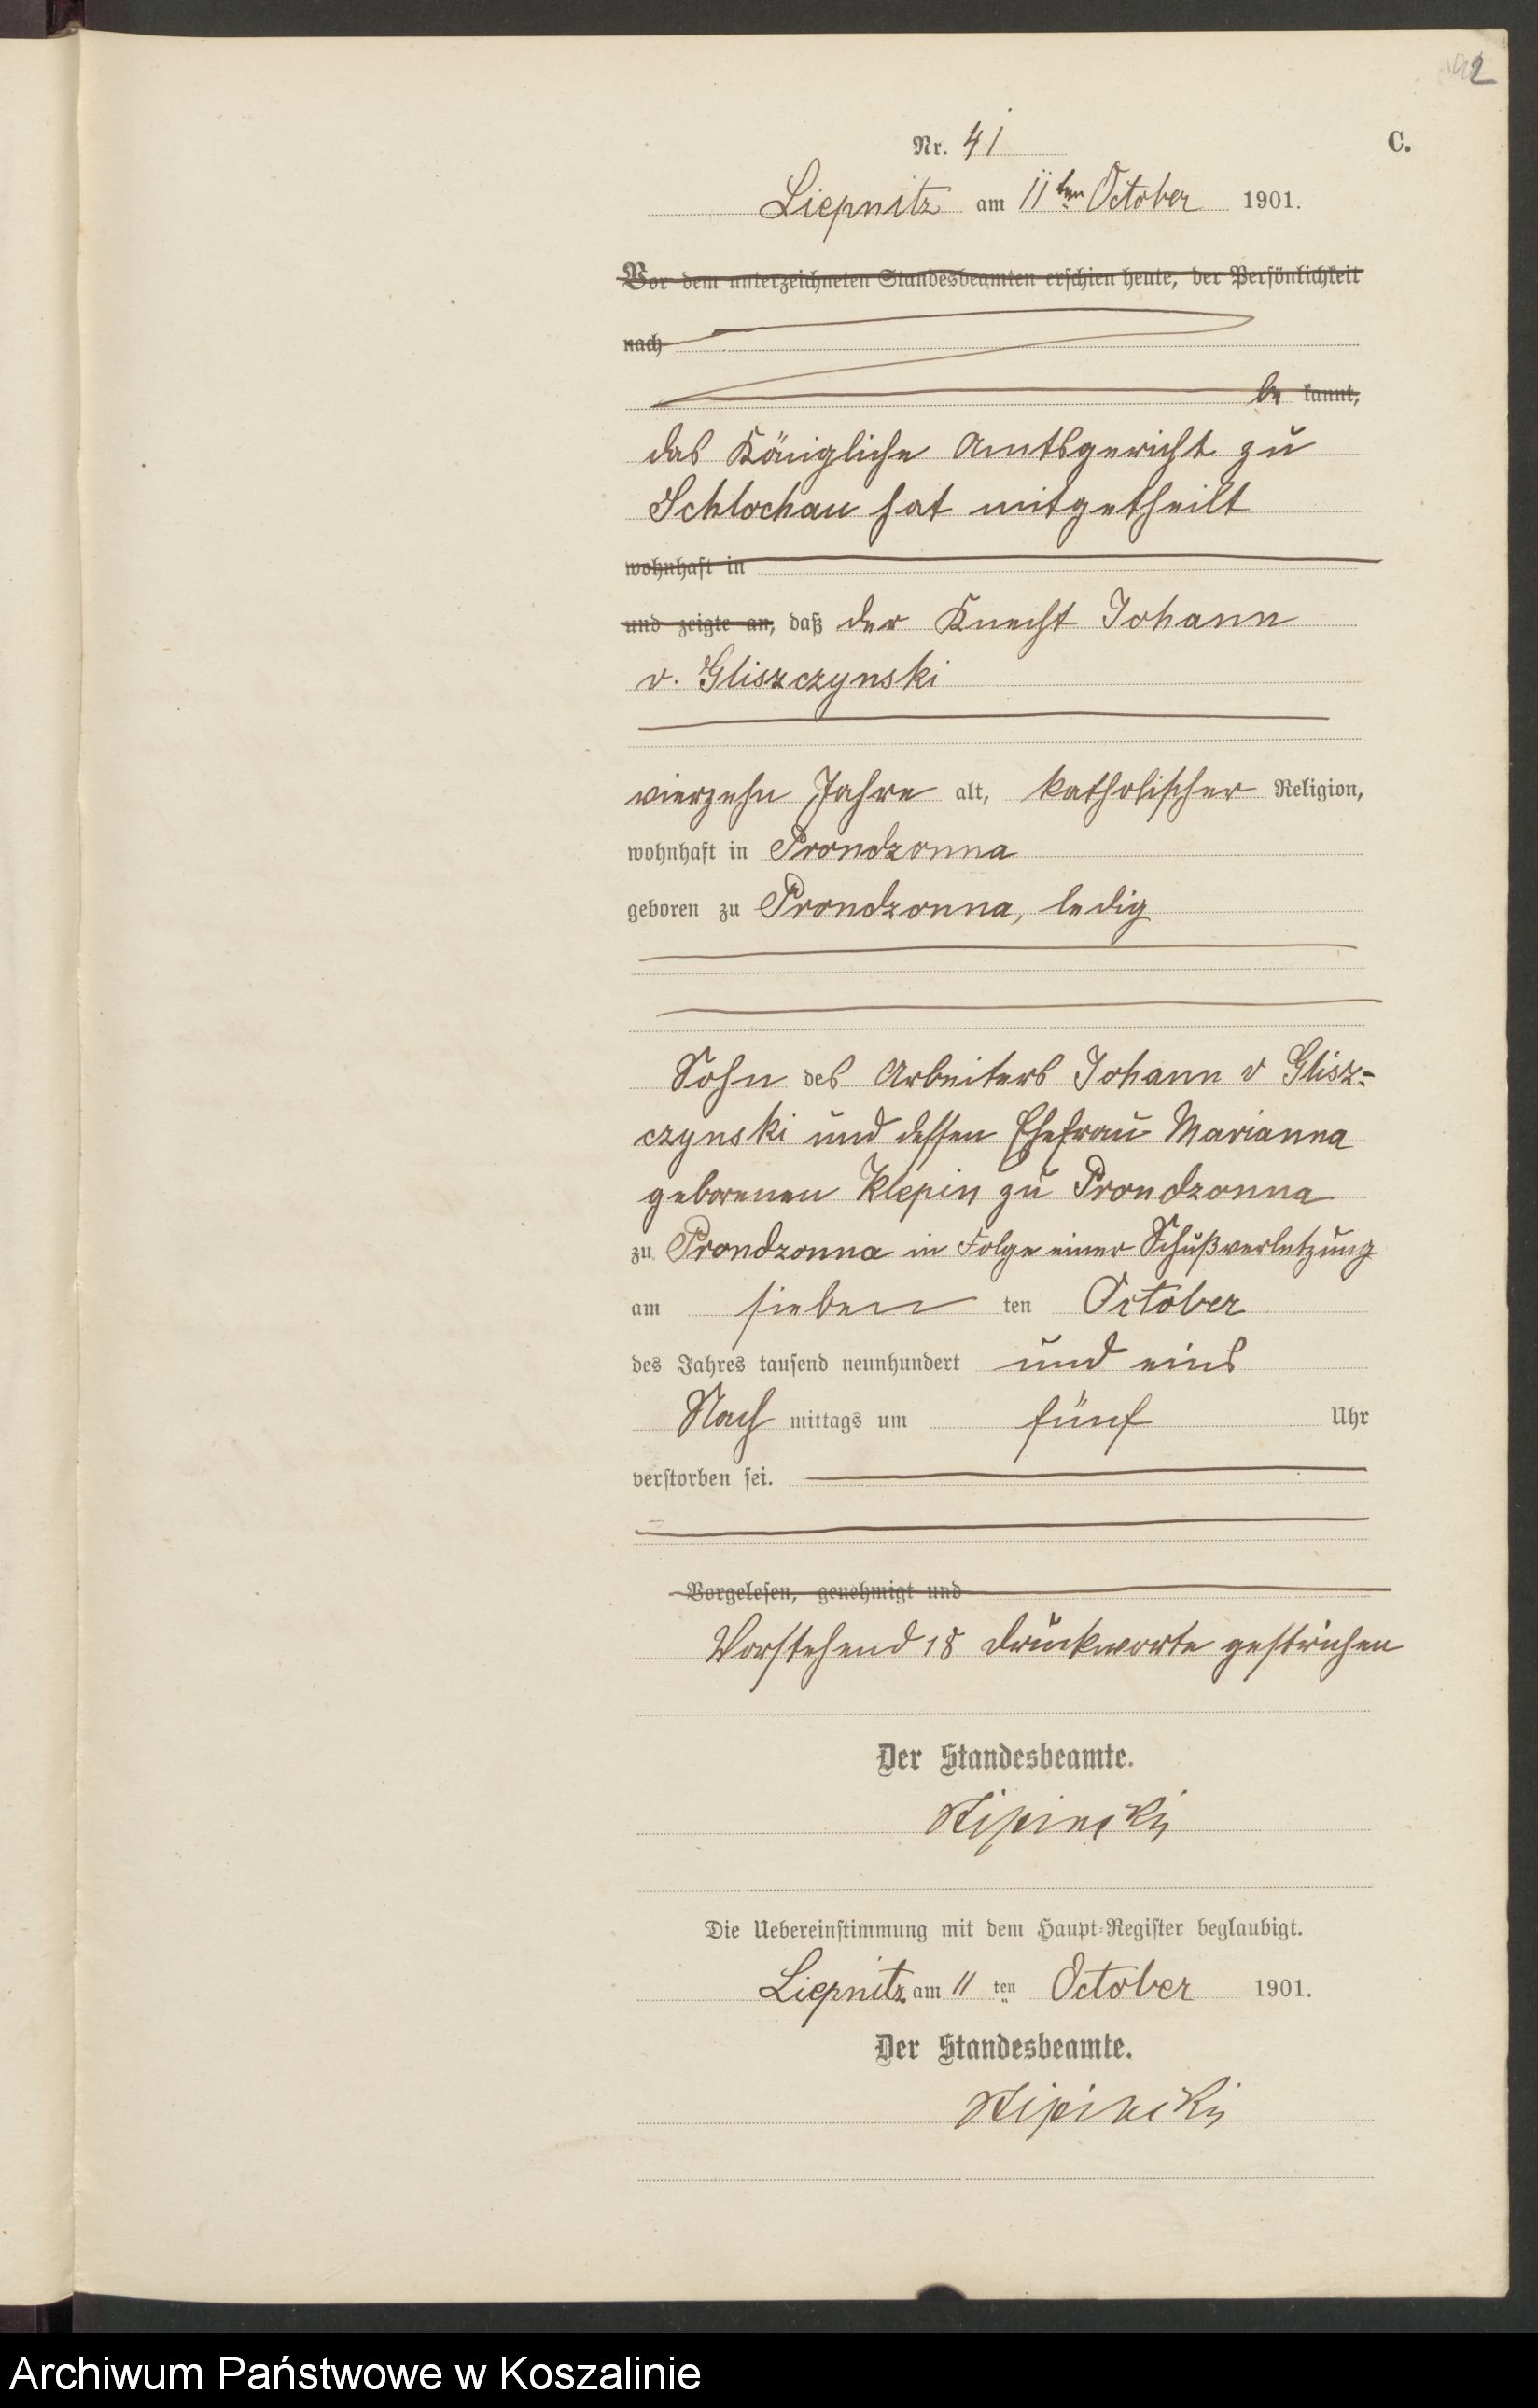 42
Nr. 41
C.
Liepnitz am 11ten October 1901.
Vor dem unterzeichneten Standesbeamten erschien heute, der Persönlichkeit
nach
be kannt,
das Königliche Amtsgericht zu
Schlochau hat mitgetheilt
wohnhaft in
und zeigte an, daß der Knecht Johann
v. Gliszczynski
vierzehn Jahre alt, katholischer Religion,
wohnhaft in Prondzonna
geboren zu Prondzonna, ledig
Sohn des Arbeiters Johann v Glisz-
czynski und dessen Ehefrau Marianna
geborenen Klepin zu Prondzonna
zu Prondzonna in Folge einer Schußverletzung
am sieben ten October
des Jahres tausend neunhundert und eins
Nach mittags um fünf Uhr
verstorben sei.
Vorgelesen, genehmigt und
Vorstehend 18 Druckworte gestrichen
Der Standesbeamte.
Die Uebereinstimmung mit dem Haupt-Register beglaubigt.
Liepnitz am 11 ten October 1901.
Der Standesbeamte.
Archiwum Państwowe w Koszalinie